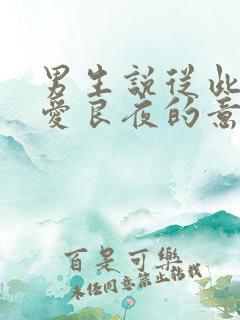 男生說從此
愛良夜的意
百是可樂
未经同意禁止转载